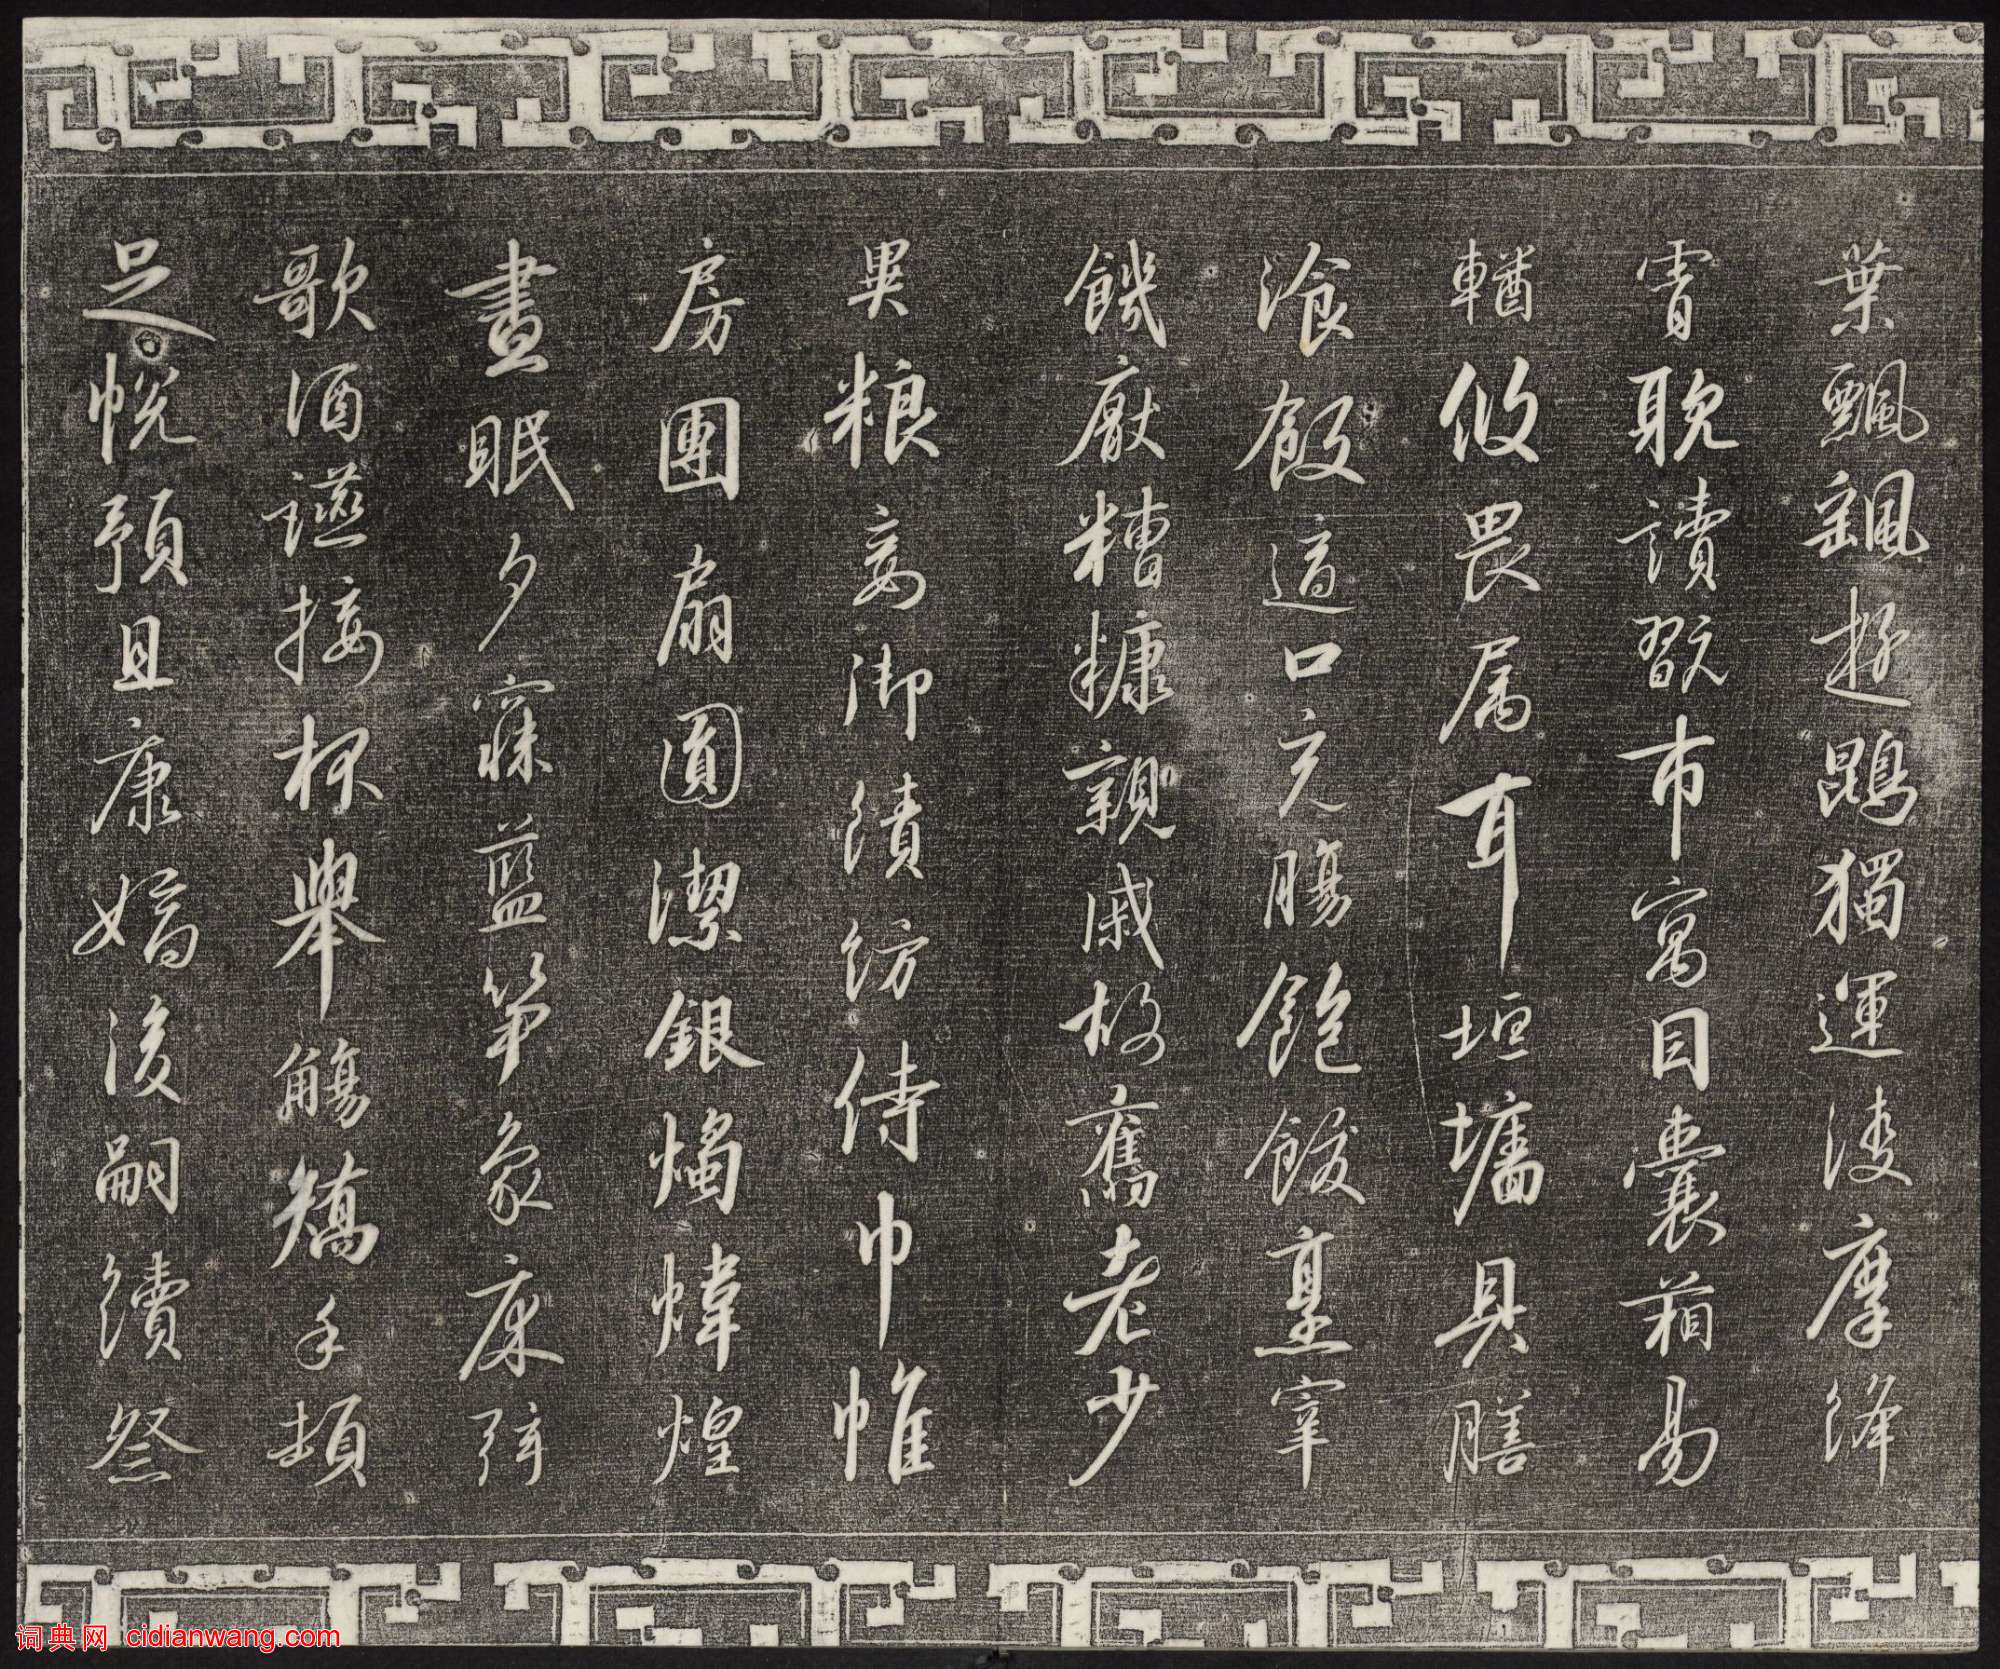 葉飄飖遊鵾獨運凌摩絳
霄耽讀翫市寓目囊箱易
輶攸畏属耳垣墻具膳
飡飯適口充腸飽飫烹宰
饑厭糟糠親戚故舊老少
異粮妾御績紡侍巾帷
房團扇圓潔銀燭煒煌
晝眠夕寐藍笋象床弦
歌酒讌接杯舉觴矯手頓
足悅預且康嫡後嗣續祭
词典网 cidianwang.com